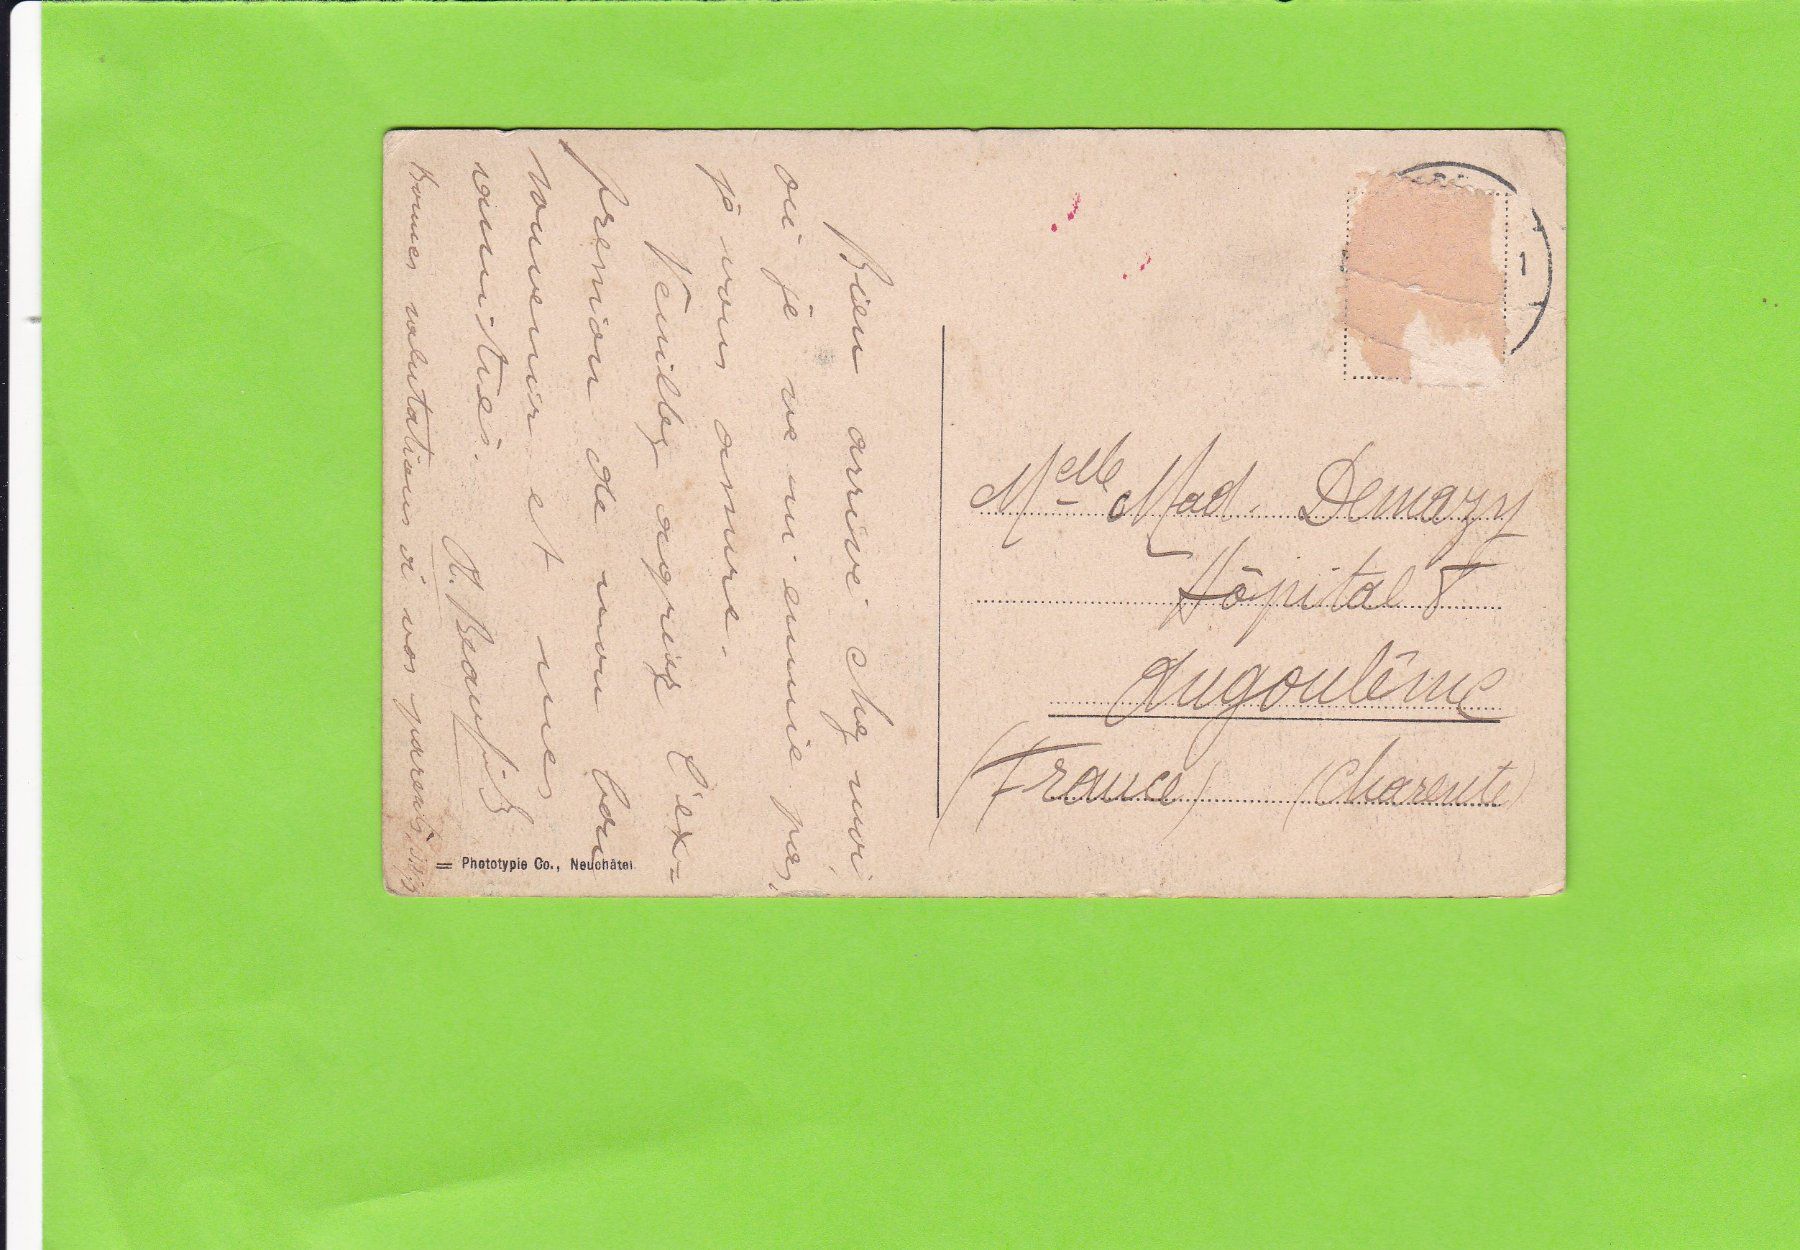 Bien arrivé chez moi
où je ne m'ennuie pas,
je vous assure.
Veuillez agréez l'ex-
pression de mon bon
souvenir et mes
amitiés.
Bonnes salutations à vos parents
Melle Mad. Demazy
Hôpital
Angoulême
(France) (Charente)
= Phototypie Co., Neuchâtel
1